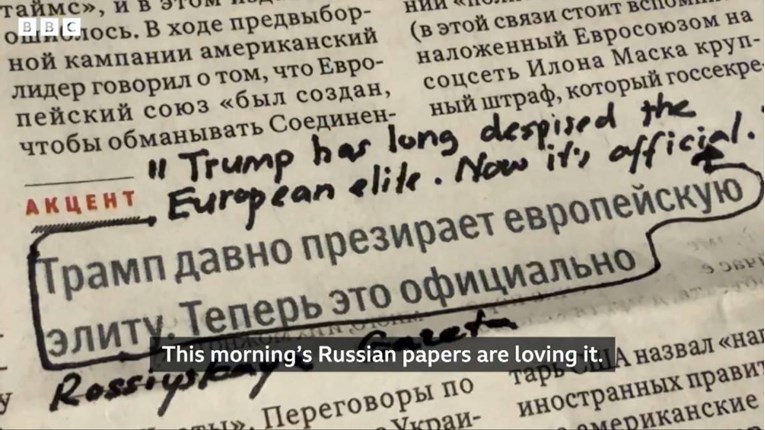 BBC
таймс», и в этом
ошиблось. В ходе предвыбор-
ной кампании американский
лидер говорил о том, что Евро-
пейский союз «был создан,
чтобы обманывать Соединен-
(в этой связи стоит вспомни
наложенный Евросоюзом на
соцсеть Илона Маска круп-
ный штраф, который госсекре-
"Trump has long despised the
European elite. Now it's official."
АКЦЕНТ
Трамп давно презирает европейскую
элиту. Теперь это официально
Rossiyskaya Gazeta
This morning's Russian papers are loving it.
Переговоры по
Украи-
США назвал «на
иностранных прави
американские